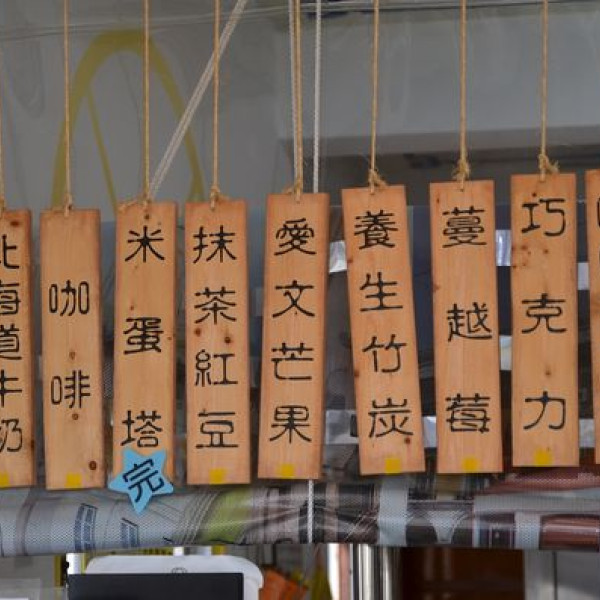 北海道牛奶
咖啡
米蛋塔
完
抹茶紅豆
愛文芒果
養生竹炭
蔓越莓
巧克力